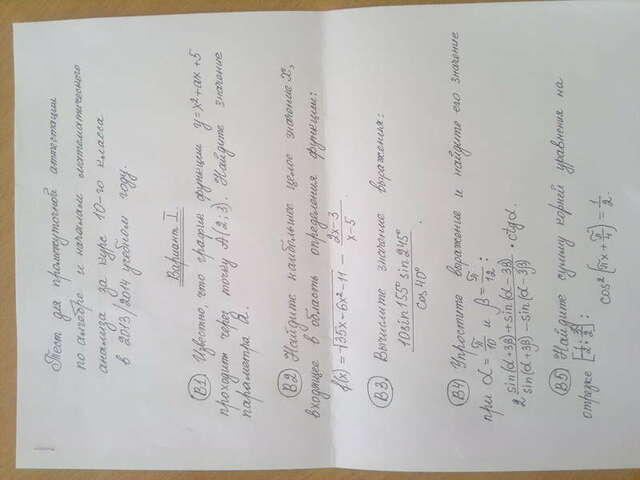 Тест для промежуточной аттестации
по алгебре и началам математического
анализа за курс 10-го класса
в 2013/2014 учебном году.
Вариант I.
В1 Известно, что график функции y=x²+ax+5
проходит через точку А(2;3). Найдите значение
параметра а.
В2 Найдите наибольшее целое значение x,
входящее в область определения функции:
f(x) = √(35x-6x²-11) - (2x-3)/(x-5).
В3 Вычислите значение выражения:
(10 sin155° sin245°)/(cos 40°).
В4 Упростите выражение и найдите его значение
при α = π/10 и β = π/12:
2 (sin(α+3β)+sin(α-3β))/(sin(α+3β)-sin(α-3β)) · ctgα.
В5 Найдите сумму корней уравнения на
отрезке
cos²(πx + π/4) = 1/2.